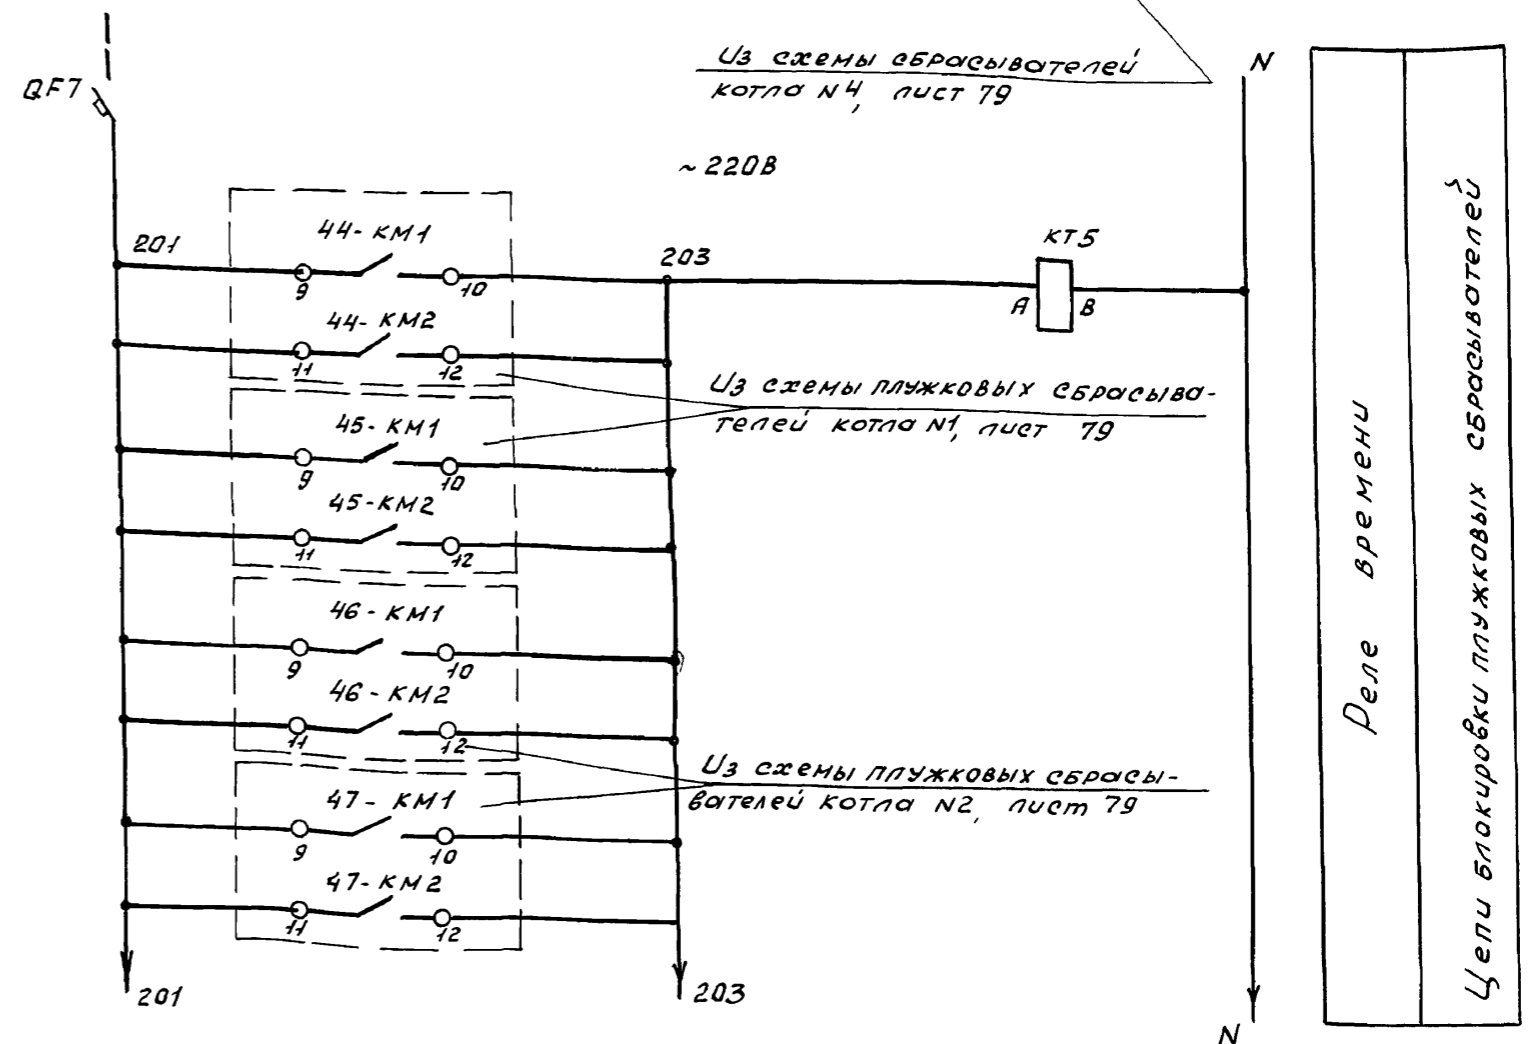 QF7
Из схемы сбрасывателей
котла N4, лист 79
N
~220В
201
44-КМ1
9
10
203
КТ5
А
В
44-КМ2
11
12
Из схемы плужковых сбрасыва-
телей котла N1, лист 79
45-КМ1
9
10
45-КМ2
11
12
46-КМ1
9
10
46-КМ2
11
12
Из схемы плужковых сбрасы-
вателей котла N2, лист 79
47-КМ1
9
10
47-КМ2
11
12
201
203
N
Реле времени
Цепи блокировки плужковых сбрасывателей